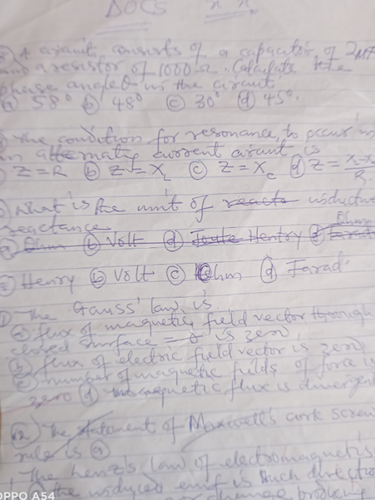 DOCS
A circuit consists of a capacitor of 2µF
and a resistor of 1000Ω. Calculate the
phase angle in the circuit
a) 58° b) 48° c) 30° d) 45°.
The condition for resonance to occur in
an alternating current circuit is
Z=R b) Z=X_L c) Z=X_c d) Z=
What is the unit of reacts inductive
reactance
Ohm b) Volt d) Joule Henry
a) Henry b) Volt c) Ohm d) Farad
The Gauss' law is
a) flux of magnetic field vector through
closed surface is zero
b) flux of electric field vector is zero
c) number of magnetic fields of force is
zero d) magnetic flux is divergen
62) The statement of Maxwell's cork screw
rule is a)
The Lenz's law of electromagnetic
the induced emf is such direction
OPPO A54